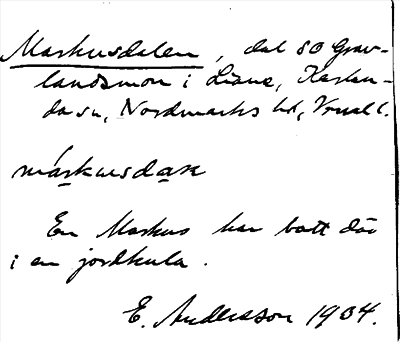 Markusdalen, dal SO Grav-
landsmon i Liane, Karlan-
da sn, Nordmarks hd, Vrml.
márkusdaɶn
En Markus har bott där
i en jordkula.
E. Andersson 1904.